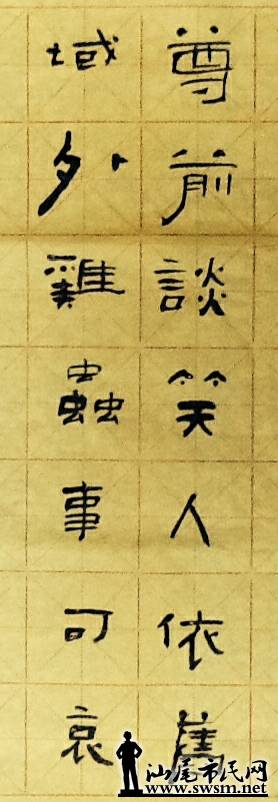 尊前談笑人依舊
域外雞蟲事可哀
汕尾市民网
www.swsm.net